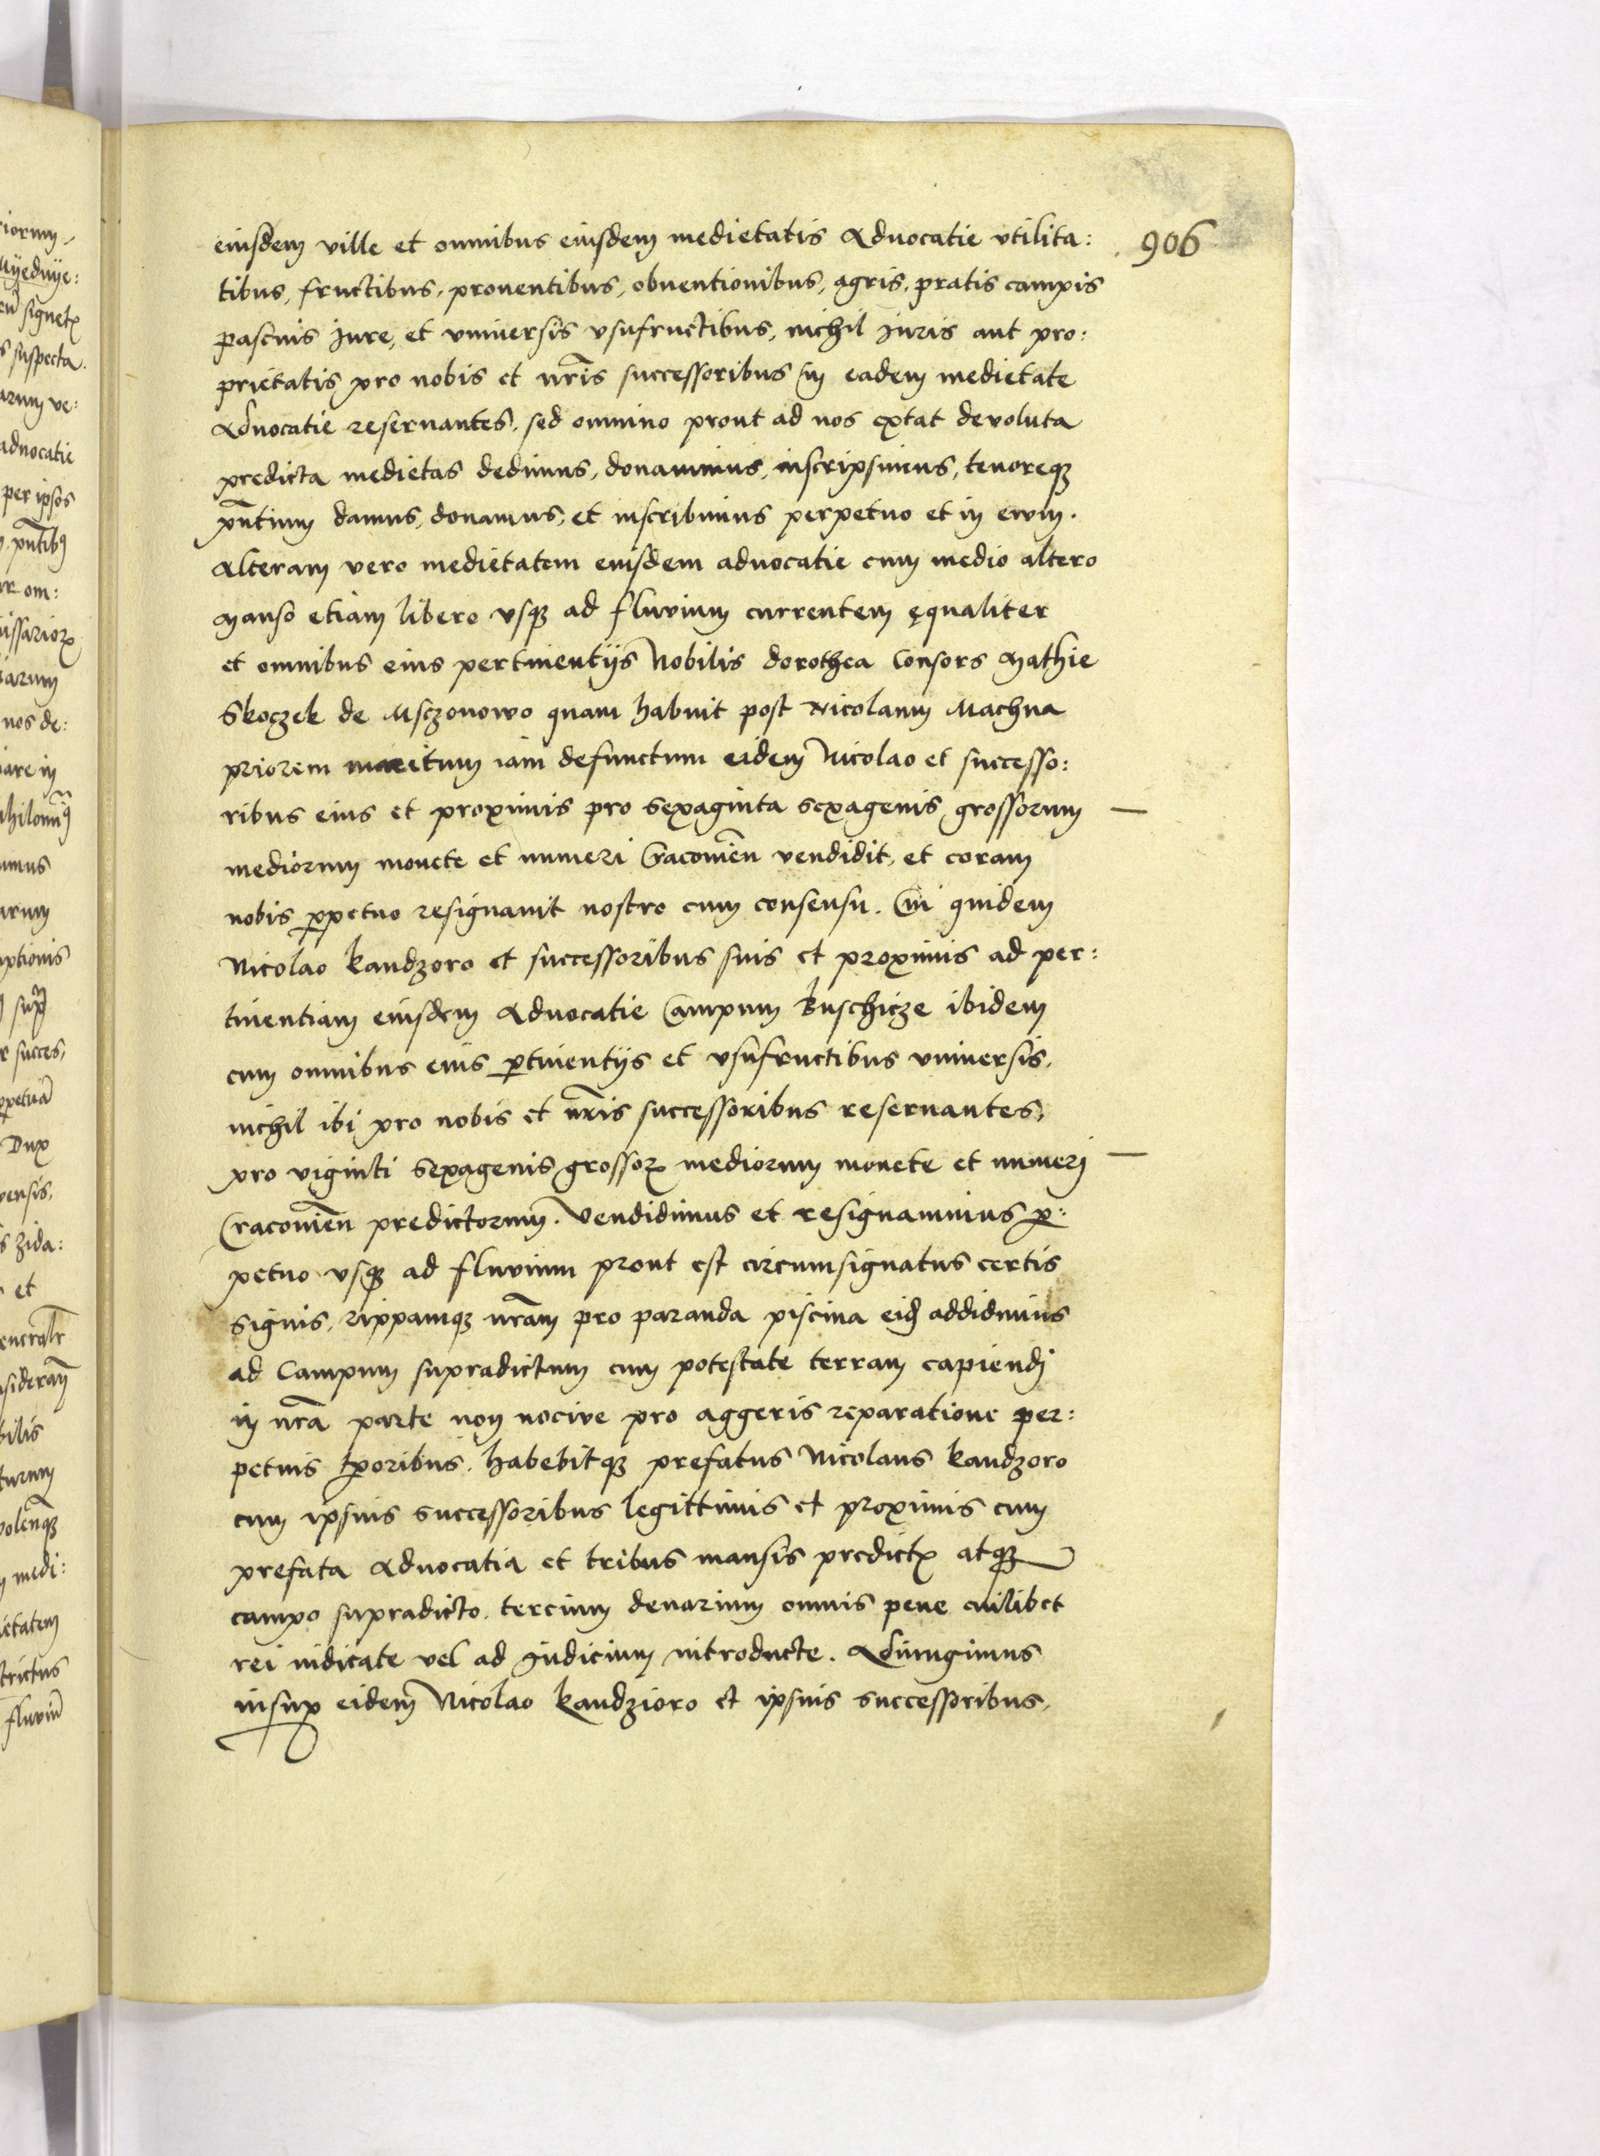 906
eiusdem ville et omnibus eiusdem medietatis Aduocatie vtilita:
tibus, fructibus, prouentibus, obuentionibus, agris, pratis campis
pascuis Iure, et vniuersis vsufructibus, nichil Iuris aut pro:
prietatis pro nobis et nr̃is successoribus in eadem medietate
Aduocatie reseruantes, sed omnino prout ad nos extat devoluta
predicta medietas dedimus, donauimus, inscripsimus, tenoreq̃
pñtium damus, donamus, et inscribimus perpetuo et in evum.
Alteram vero medietatem eiusdem aduocatie cum medio altero
manso etiam libero vsq̃ ad fluvium currentem ęqualiter
et omnibus eius pertinentijs Nobilis dorothea Consors Mathie
Skoczek de Msczonowo quam habuit post Nicolaum Machna
priorem maritum iam defunctum eidem Nicolao et successo:
ribus eius et proximis pro sexaginta sexagenis grossorum
mediorum monete et numeri Cracouień vendidit, et coram
nobis p̱petuo resignauit nostro cum consensu. Cui quidem
Nicolao kandzoro et successoribus suis et proximis ad per:
tinentiam eiusdem Aduocatie Campum Buschicze ibidem
cum omnibus eius p̱tinentijs et vsufructibus vniuersis,
nichil ibi pro nobis et nr̃is successoribus reseruantes,
pro viginti sexagenis grossoꝝ mediorum monete et numeri
Cracouień predictorum. Vendidimus et resignauimus p̱:
petuo vsq̃ ad fluvium prout est circumsignatus certis
signis, rippamq̃ nr̃am pro paranda piscina eid̃ addidimus
ad Campum supradictum cum potestate terram capiendi
in nr̃a parte non nocive pro aggeris reparatione per:
petuis tp̱oribus. habebitq̃ prefatus Nicolaus kandzoro
cum ipsius successoribus legittimis et proximis cum
prefata Aduocatia et tribus mansis predictꝭ atq̃
campo supradicto. tercium denarium omnis pene cuilibet
rei iudicate vel ad Iudicium introducte. Adiungimus
insup̱ eidem̃ Nicolao kandzioro et ipsius successoribus,